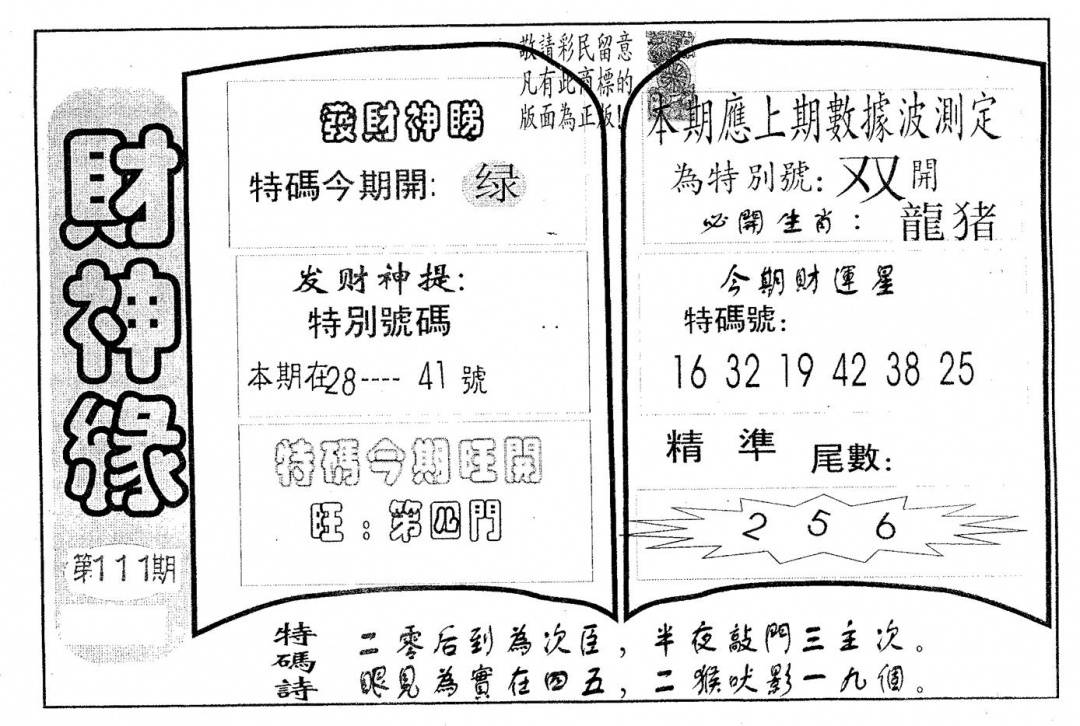 財神緣
第111期
敬請彩民留意
凡有此商標的
版面為正版!
發財神睇
特碼今期開: 绿
发财神提:
特別號碼
本期在28---- 41 號
特碼今期旺開
旺:第四門
本期應上期數據波測定
為特別號: 双 開
必開生肖: 龍猪
今期財運星
特碼號:
16 32 19 42 38 25
精 準 尾數:
2 5 6
特碼詩
二零后到為次臣,半夜敲門三主次。
眼見為實在四五,二猴吠影一九個。